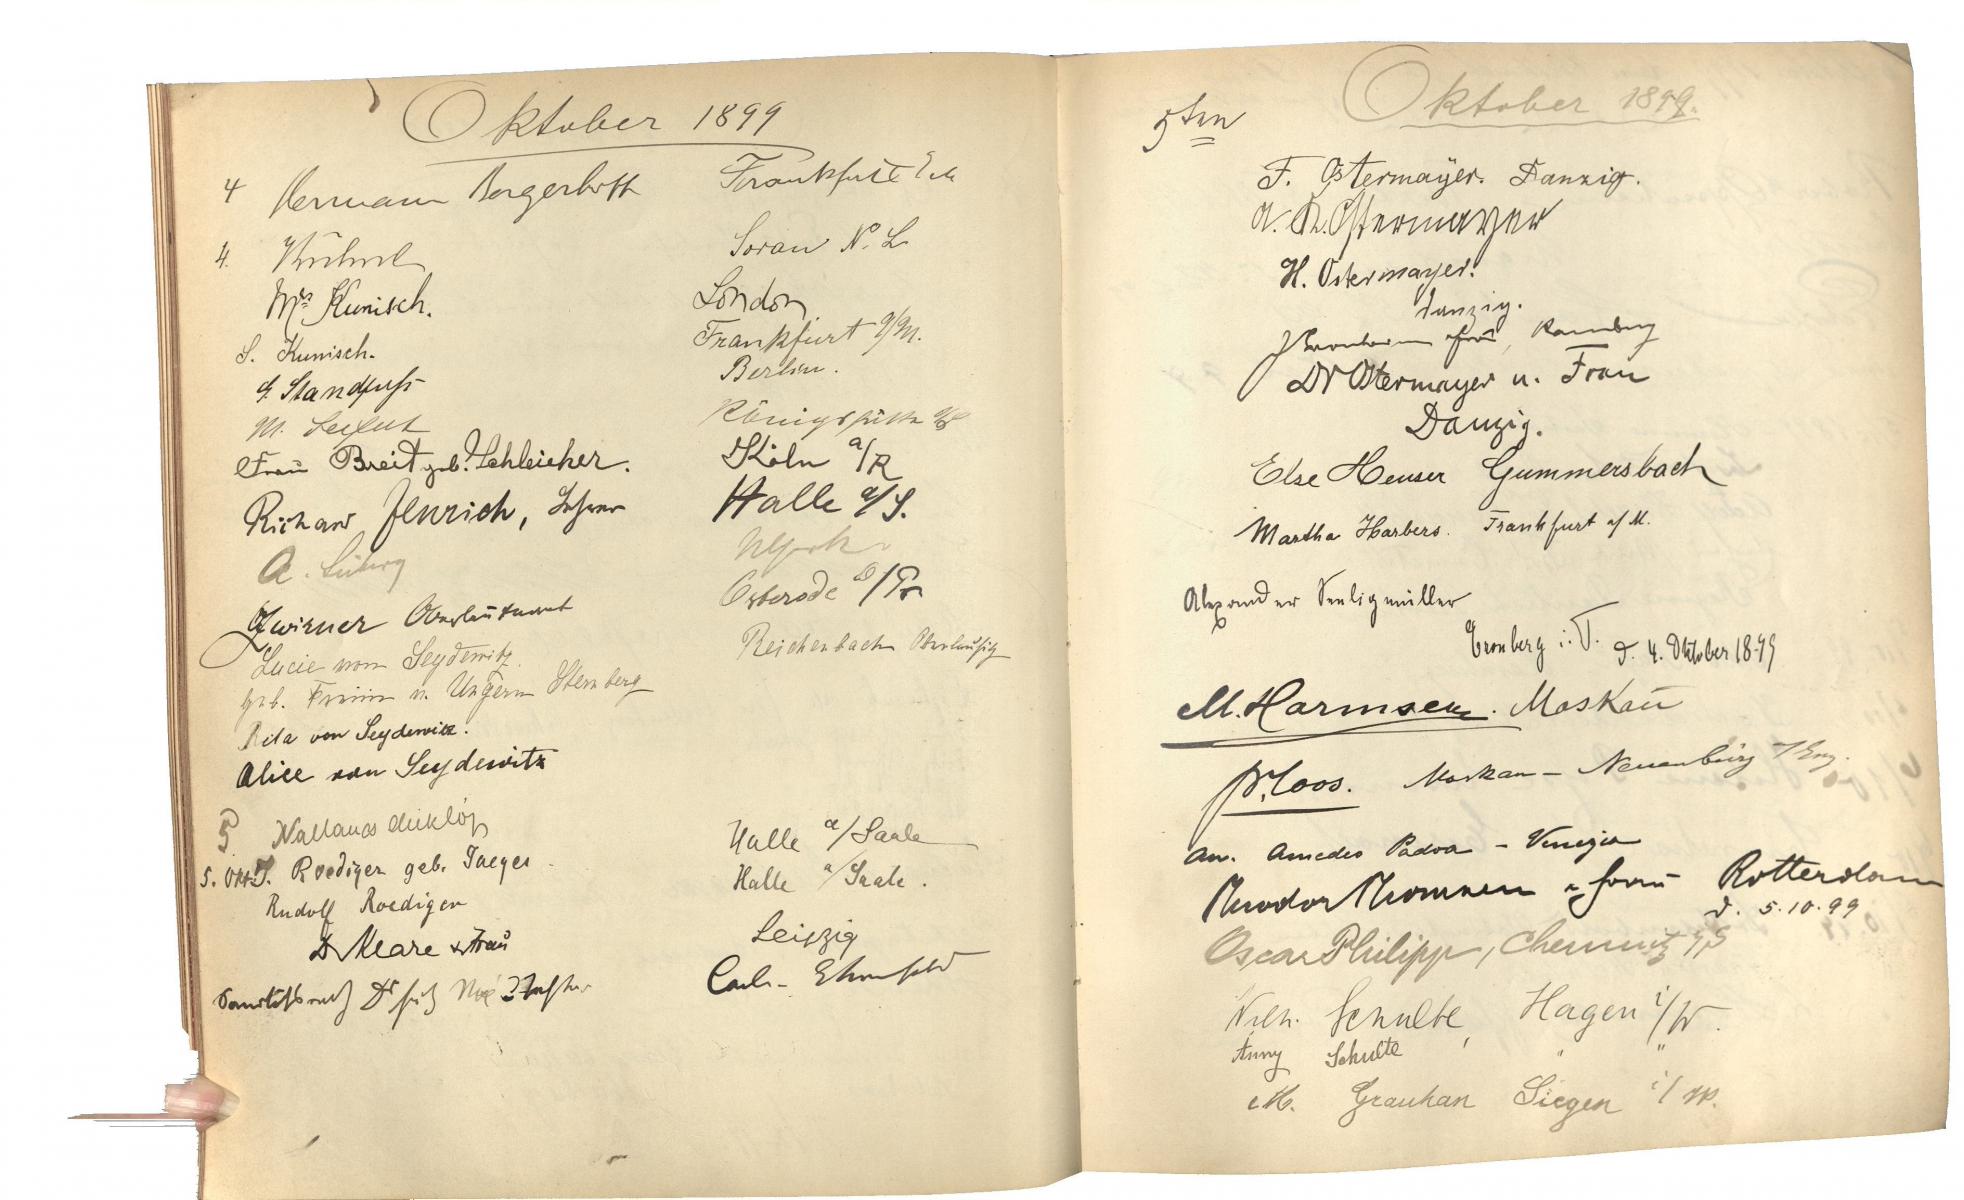 Oktober 1899
4 Hermann Bergerhoff Frankfurt
4. Sorau N. L.
Mrs Kunisch. London
S. Kunisch. Frankfurt a/M.
G. Standfuss Berlin.
M. Seifert Königshütte
Frau Breit geb. Schleicher. Köln a/R
Richard Jenrich, Lehrer Halle a/S.
A.
Zwirner Oberleutnant Osterode O/Pr
Lucie von Seydewitz. Reichenbach Oberlausitz
geb. Freiin v. Ungern Sternberg
Rita von Seydewitz.
Alice von Seydewitz
5 Halle a/Saale
5. Okt. J. Roediger geb. Jaeger Halle a/Saale.
Rudolf Roediger
Dr Klare & Frau Leipzig
Sanitätsrath Dr
5ten
Oktober 1899.
F. Ostermayer. Danzig.
A. R. Ostermayer
H. Ostermayer.
Danzig.
Frau,
Dr Ostermayer u. Frau
Danzig.
Else Heuser Gummersbach
Martha Harbers. Frankfurt a/M.
Alexander Seeligmüller
Cronberg i. T. d. 4. Oktober 1899
M. Harmsen. Moskau
W. Loos. Moskau – Neuenbürg
Amedeo Padoa – Venezia
Theodor Thomsen u Frau Rotterdam
d. 5.10.99
Oscar Philipp, Chemnitz i/S
Wilh. Schulte, Hagen i/W.
Anny Schulte, " "
M. Grauhan Siegen i/W.